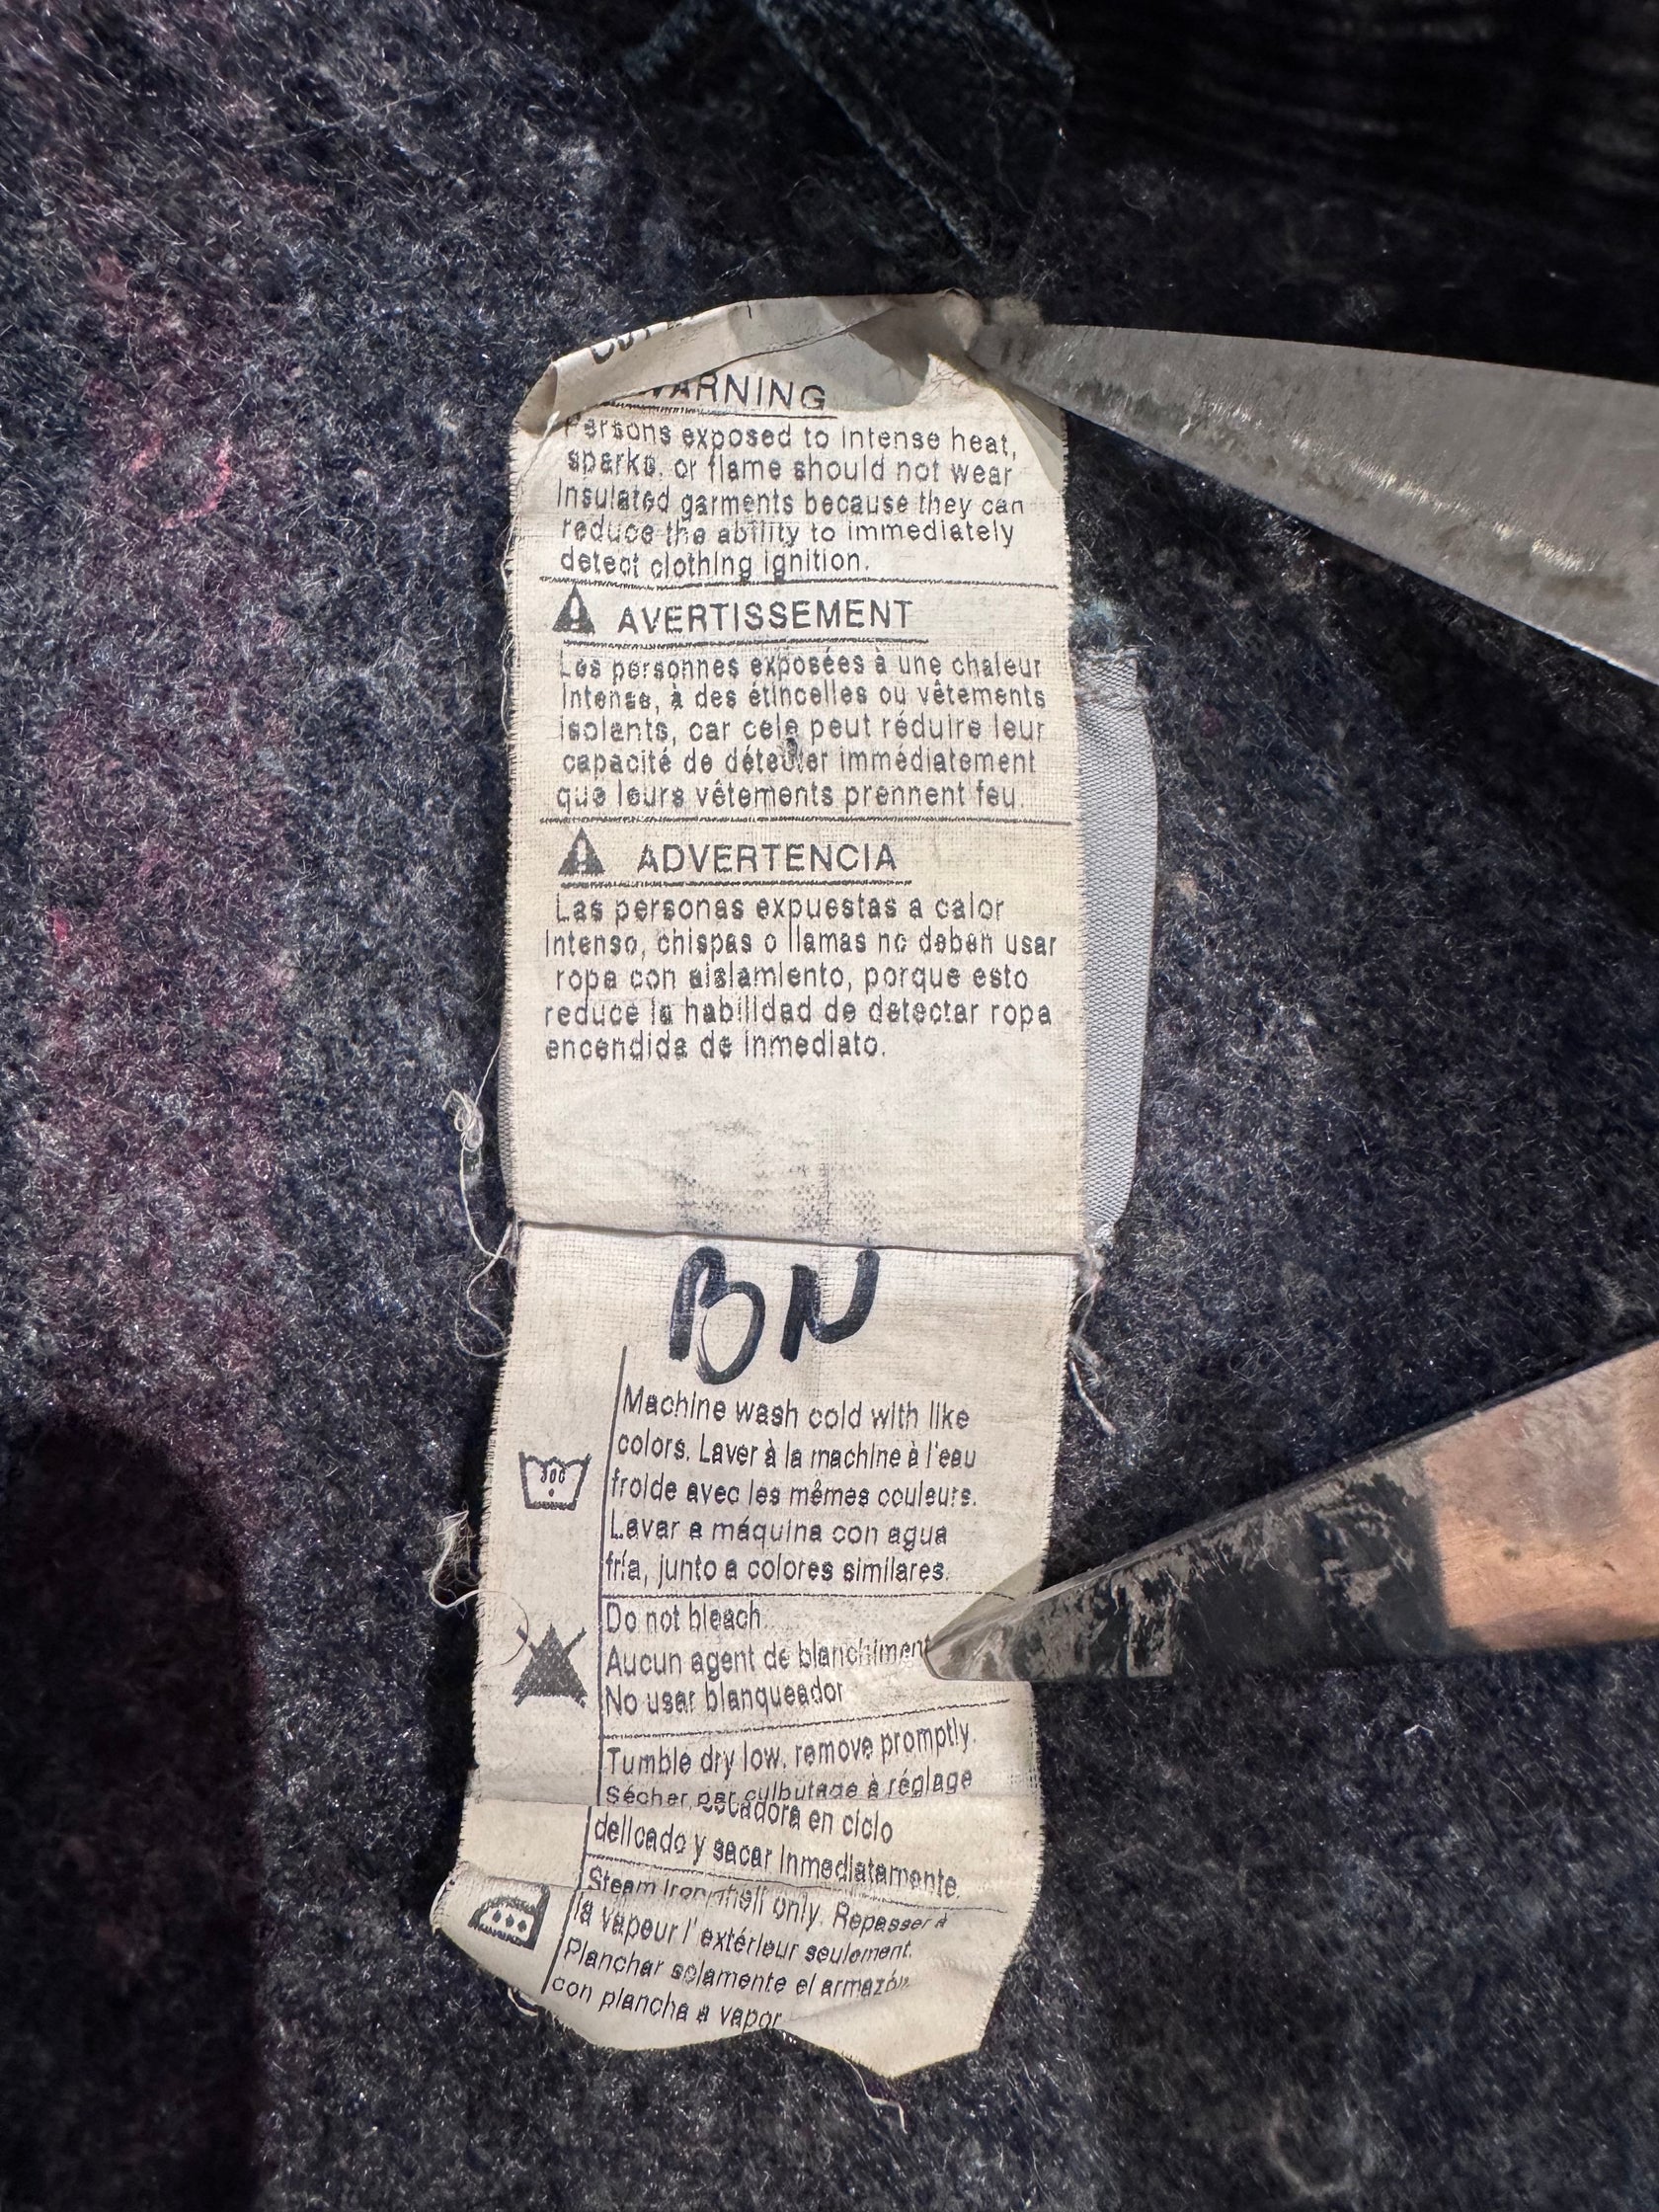 WARNING
Persons exposed to intense heat,
sparks, or flame should not wear
insulated garments because they can
reduce the ability to immediately
detect clothing ignition.
AVERTISSEMENT
Les personnes exposées à une chaleur
intense, à des étincelles ou vêtements
isolants, car cele peut réduire leur
capacité de détecter immédiatement
que leurs vêtements prennent feu.
ADVERTENCIA
Las personas expuestas a calor
intenso, chispas o llamas no deben usar
ropa con aislamiento, porque esto
reduce la habilidad de detectar ropa
encendida de inmediato.
BN
Machine wash cold with like
colors. Laver à la machine à l'eau
froide avec les mêmes couleurs.
Lavar a máquina con agua
fría, junto a colores similares.
Do not bleach
Aucun agent de blanchiment
No usar blanqueador
Tumble dry low, remove promptly.
Sécher par culbutage à réglage
en ciclo
delicado y sacar inmediatamente.
Steam iron shell only. Repasser à
la vapeur l' extérieur seulement.
Planchar solamente el armazón
con plancha a vapor